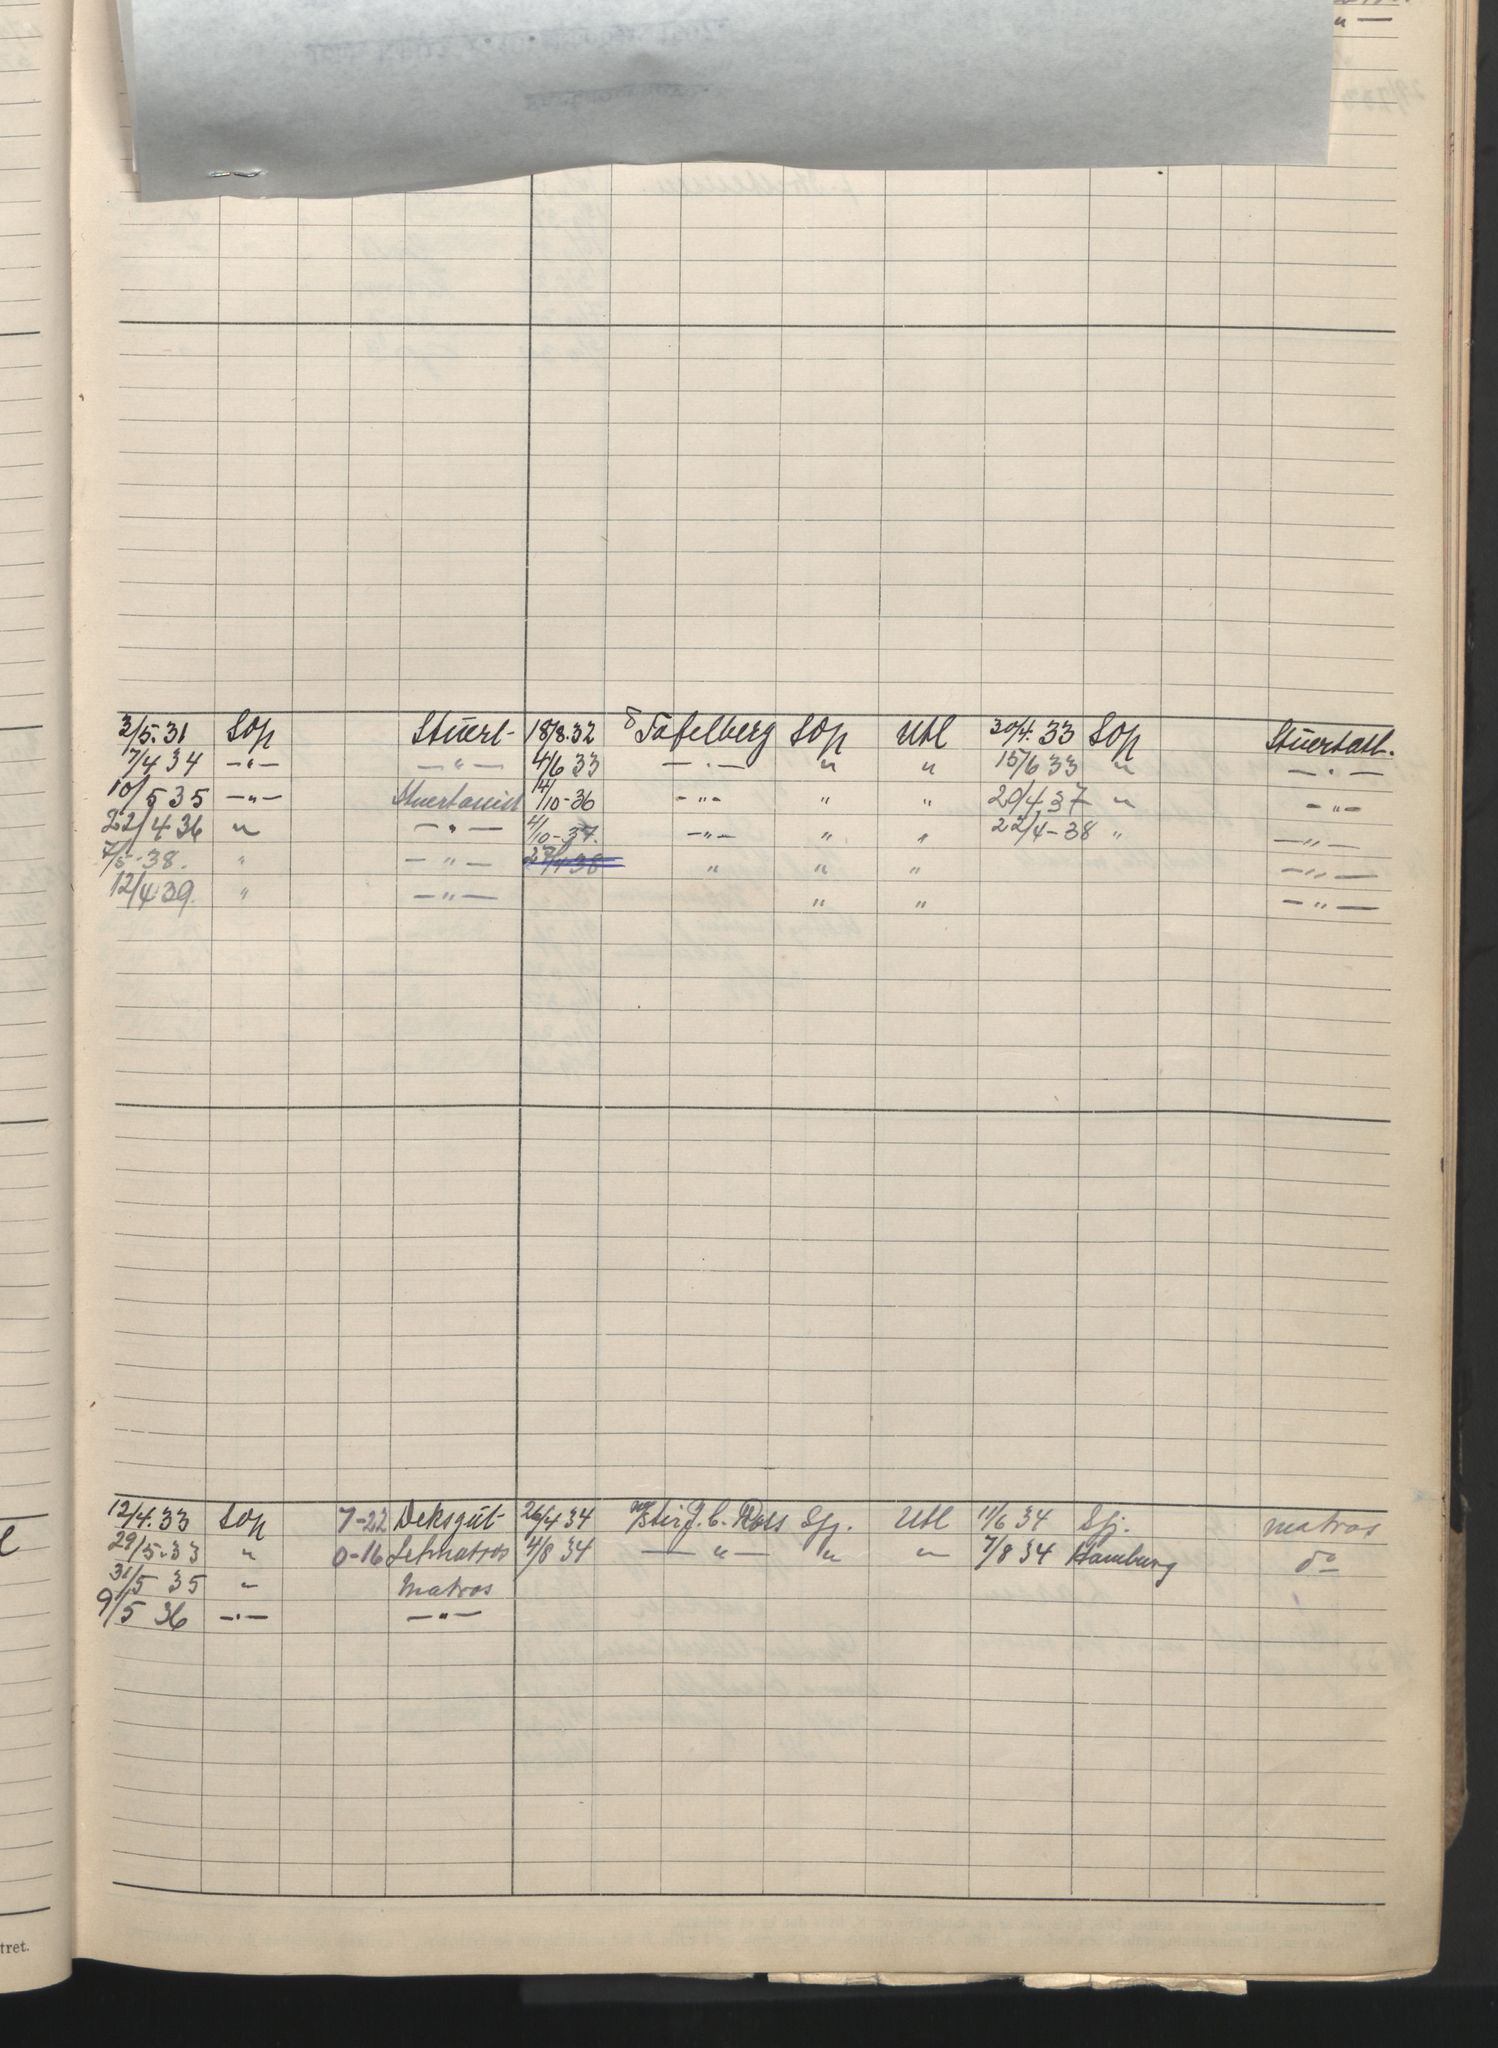 — " —
2/5.31 Sop Stuert- 18/8.32 S Tafelberg Sop Utl 30/4.33 Sop Stuertass.
7/4 34 —"— —"— 4/6 33 —"— " " 15/6 33 " —"—
10/5 35 —"— Stuertassist 14/10-36 —"— " " 20/4 37 " —"—
22/4 36 " —"— 4/10-37. —"— " " 22/4-38 " —"—
7/5-38. " —"— " " " —"—
12/4 39. " —"— " " —"—
12/4.33 Sop 7-22 Deksgut- 26/4 34 Sir J. C. Ross Sfj. Utl 11/6 34 Sfj. matros
l
29/5.33 " 0-16 Letmatros 4/8 34 —"— " " 7/8 34 Hamburg do
31/5 35 " Matros
9/5 36 —"— —"—
tret.